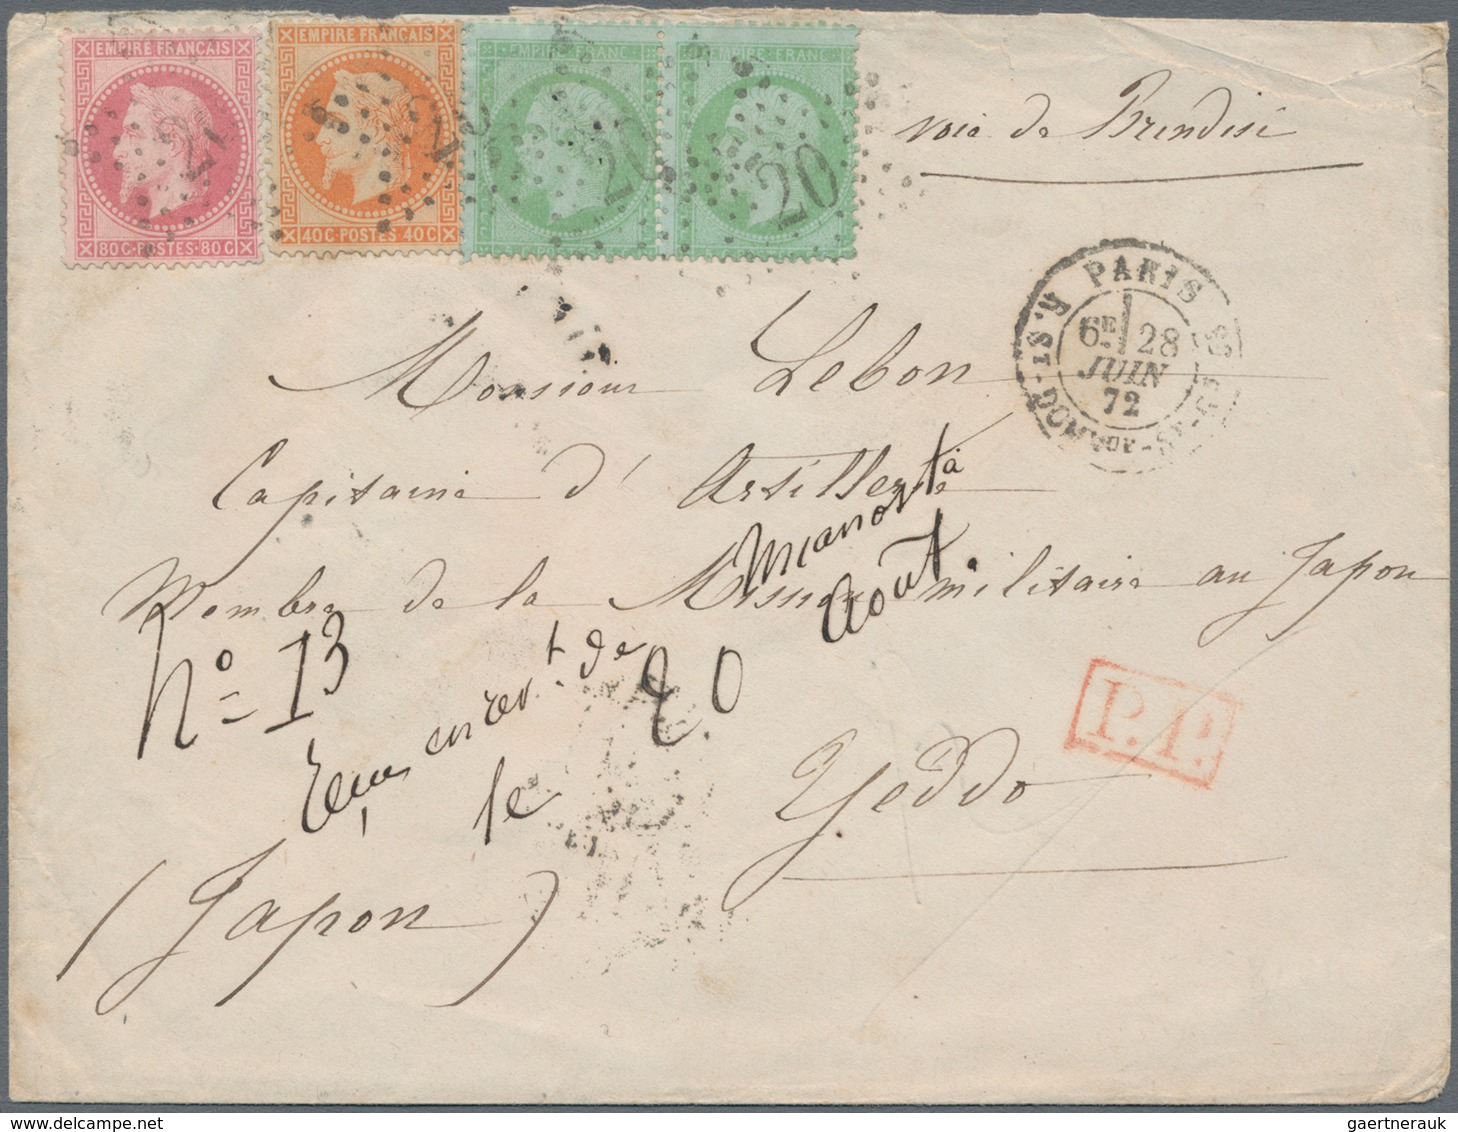 EMPIRE FRANÇAIS
80 C · POSTES · 80 C
EMPIRE FRANÇAIS
40 C · POSTES · 40 C
EMPIRE FRANC
EMPIRE FRANC
20
20
voie de Brindisi
PARIS
R. ST-DOMQUE-ST-GN
6E 28
JUIN
72
Monsieur Lebon
Capitaine d'Artillerie
Membre de la Mission militaire au Japon
No 13
le 20 Aout.
P.P.
Yeddo
(Japon)
gaertnerauk